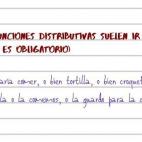 UNCIONES DISTRIBUTIVAS SUELEN IR
ES OBLIGATORIO)
aría comer, o bien tortilla, o bien croquet
la o la comemos, o la guardo para la c